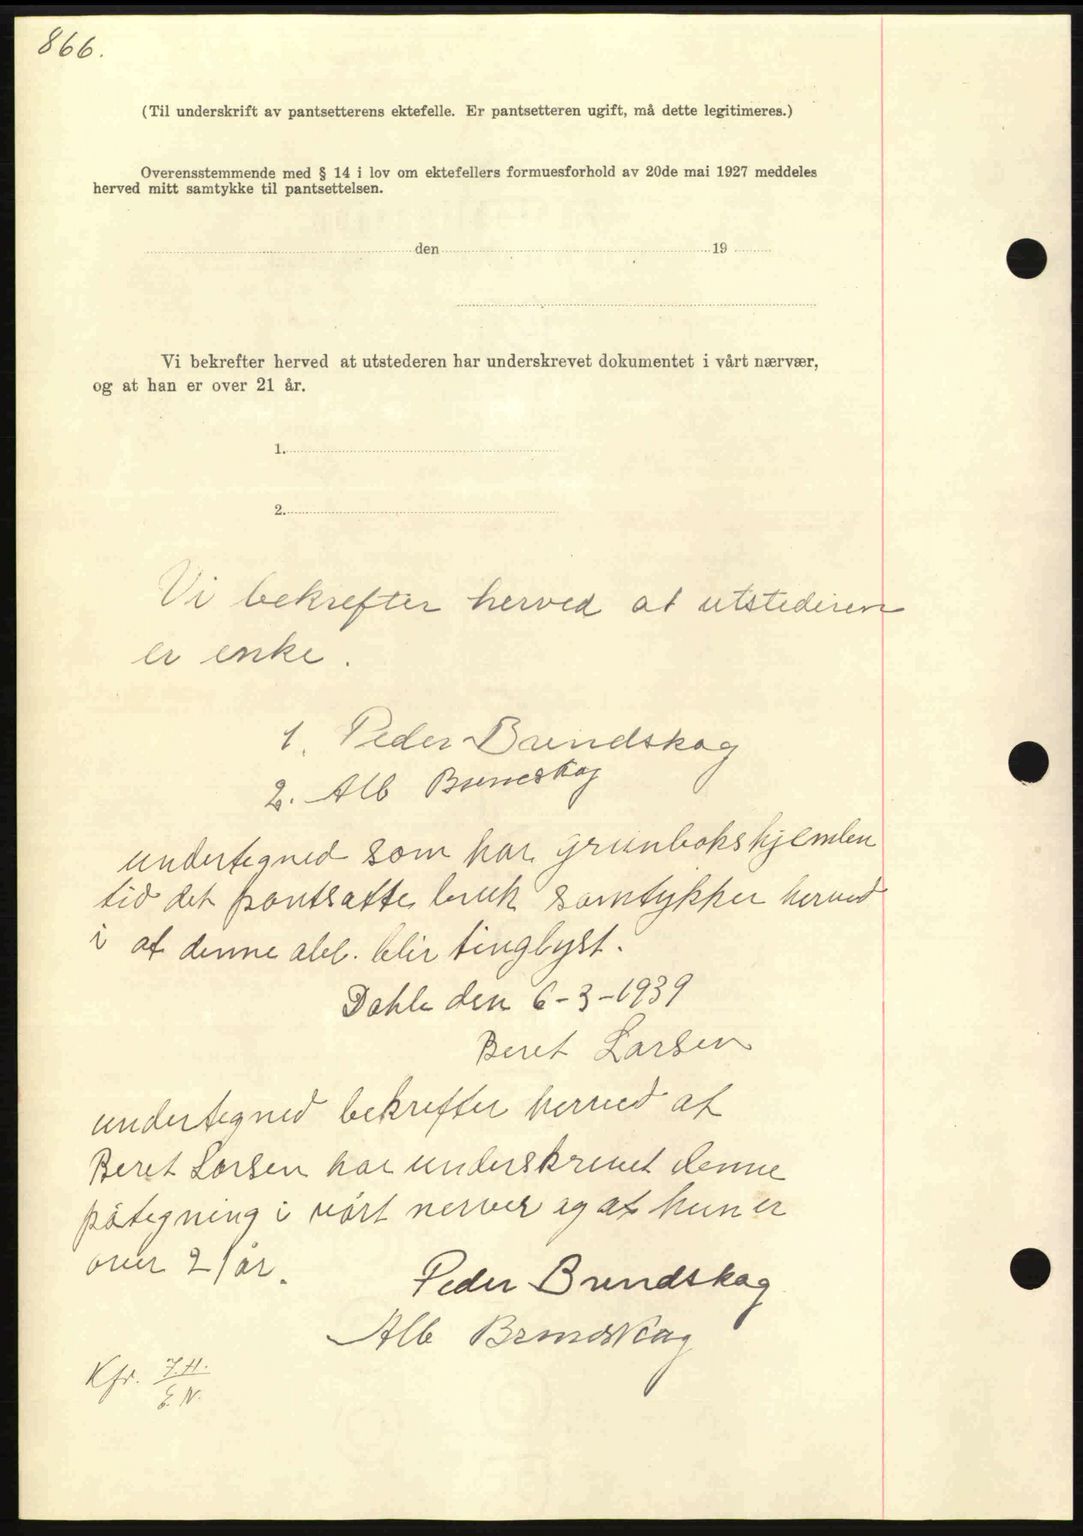 866.
(Til underskrift av pantsetterens ektefelle. Er pantsetteren ugift, må dette legitimeres.)
Overensstemmende med § 14 i lov om ektefellers formuesforhold av 20de mai 1927 meddeles
herved mitt samtykke til pantsettelsen.
den 19
Vi bekrefter herved at utstederen har underskrevet dokumentet i vårt nærvær,
og at han er over 21 år.
1.
2.
Vi bekrefter herved at utstederen
er enke.
1. Peder Brendskag
2. Alb Brendskag
undertegned som har grunbokshjemlen
tid det pantsatte bruk samtykker herved
i at denne obl. blir tinglyst.
Dahle den 6-3-1939
Beret Larsen
undertegned bekrefter herved at
Beret Larsen har underskrevet denne
påtegning i vårt nerver og at hun er
over 21 år.
Peder Brendskag
Alb Brendskag
Kfr. J.H.
E.N.